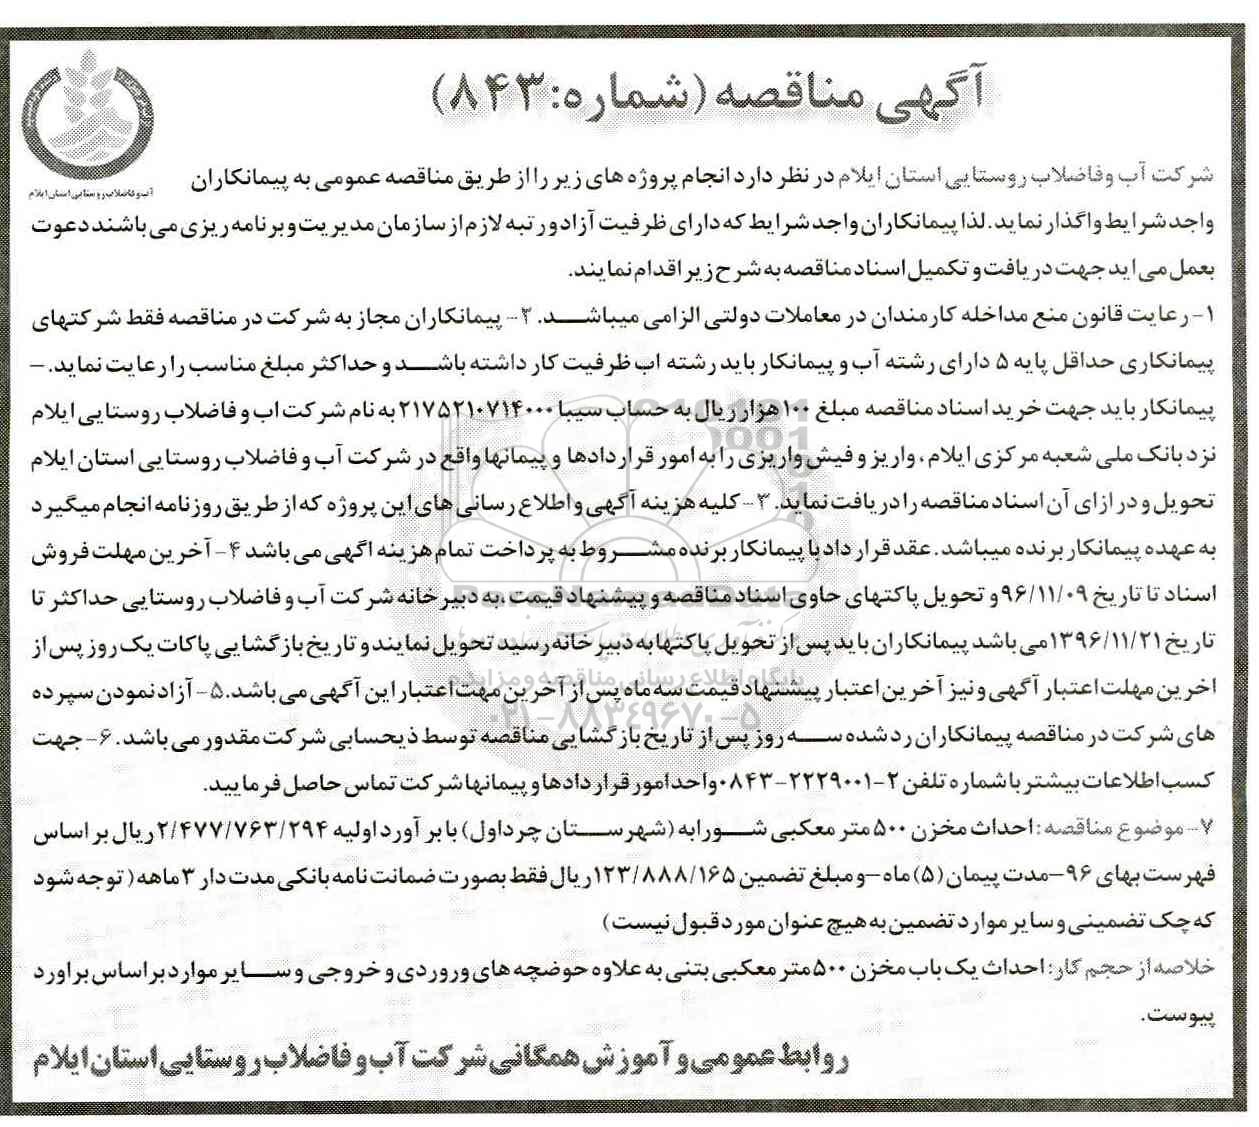 آگهی مناقصه (شماره: ۸۴۳)
آب و فاضلاب روستایی استان ایلام
شرکت آب وفاضلاب روستایی استان ایلام در نظر دارد انجام پروژه های زیر را از طریق مناقصه عمومی به پیمانکاران
واجد شرایط واگذار نماید. لذا پیمانکاران واجد شرایط که دارای ظرفیت آزاد و رتبه لازم از سازمان مدیریت و برنامه ریزی می باشند دعوت
بعمل می اید جهت دریافت و تکمیل اسناد مناقصه به شرح زیر اقدام نمایند.
۱- رعایت قانون منع مداخله کارمندان در معاملات دولتی الزامی میباشد. ۲- پیمانکاران مجاز به شرکت در مناقصه فقط شرکتهای
پیمانکاری حداقل پایه ۵ دارای رشته آب و پیمانکار باید رشته اب ظرفیت کار داشته باشد و حداکثر مبلغ مناسب را رعایت نماید. –
پیمانکار باید جهت خرید اسناد مناقصه مبلغ ۱۰۰ هزار ریال به حساب سیبا ۲۱۷۵۲۱۰۷۱۴۰۰۰ به نام شرکت اب و فاضلاب روستایی ایلام
نزد بانک ملی شعبه مرکزی ایلام ، واریز و فیش واریزی را به امور قراردادها و پیمانها واقع در شرکت آب و فاضلاب روستایی استان ایلام
تحویل و در ازای آن اسناد مناقصه را دریافت نماید. ۳- کلیه هزینه آگهی و اطلاع رسانی های این پروژه که از طریق روزنامه انجام میگیرد
به عهده پیمانکار برنده میباشد. عقد قرار داد با پیمانکار برنده مشروط به پرداخت تمام هزینه اگهی می باشد ۴- آخرین مهلت فروش
اسناد تا تاریخ ۹۶/۱۱/۰۹ و تحویل پاکتهای حاوی اسناد مناقصه و پیشنهاد قیمت، به دبیرخانه شرکت آب و فاضلاب روستایی حداکثر تا
تاریخ ۱۳۹۶/۱۱/۲۱ می باشد پیمانکاران باید پس از تحویل پاکتها به دبیر خانه رسید تحویل نمایند و تاریخ بازگشایی پاکات یک روز پس از
اخرین مهلت اعتبار آگهی و نیز آخرین اعتبار پیشنهاد قیمت سه ماه پس از آخرین مهت اعتبار این آگهی می باشد. ۵- آزاد نمودن سپرده
های شرکت در مناقصه پیمانکاران رد شده سه روز پس از تاریخ بازگشایی مناقصه توسط ذیحسابی شرکت مقدور می باشد. ۶- جهت
کسب اطلاعات بیشتر با شماره تلفن ۲-۲۲۲۹۰۰۱-۰۸۴۳ واحد امور قراردادها و پیمانها شرکت تماس حاصل فرمایید.
۷- موضوع مناقصه: احداث مخزن ۵۰۰ متر معکبی شورابه (شهرستان چرداول) با بر آورد اولیه ۲/۴۷۷/۷۶۳/۲۹۴ ریال بر اساس
فهرست بهای ۹۶ –مدت پیمان (۵) ماه –و مبلغ تضمین ۱۲۳/۸۸۸/۱۶۵ ریال فقط بصورت ضمانت نامه بانکی مدت دار ۳ ماهه( توجه شود
که چک تضمینی و سایر موارد تضمین به هیچ عنوان مورد قبول نیست)
خلاصه از حجم کار: احداث یک باب مخزن ۵۰۰ متر معکبی بتنی به علاوه حوضچه های وروردی و خروجی و سایر موارد بر اساس براورد
پیوست.
روابط عمومی و آموزش همگانی شرکت آب و فاضلاب روستایی استان ایلام
ParsNamadData
پایگاه اطلاع رسانی مناقصه و مزایده
۰۲۱-۸۸۳۴۹۶۷۰-۵